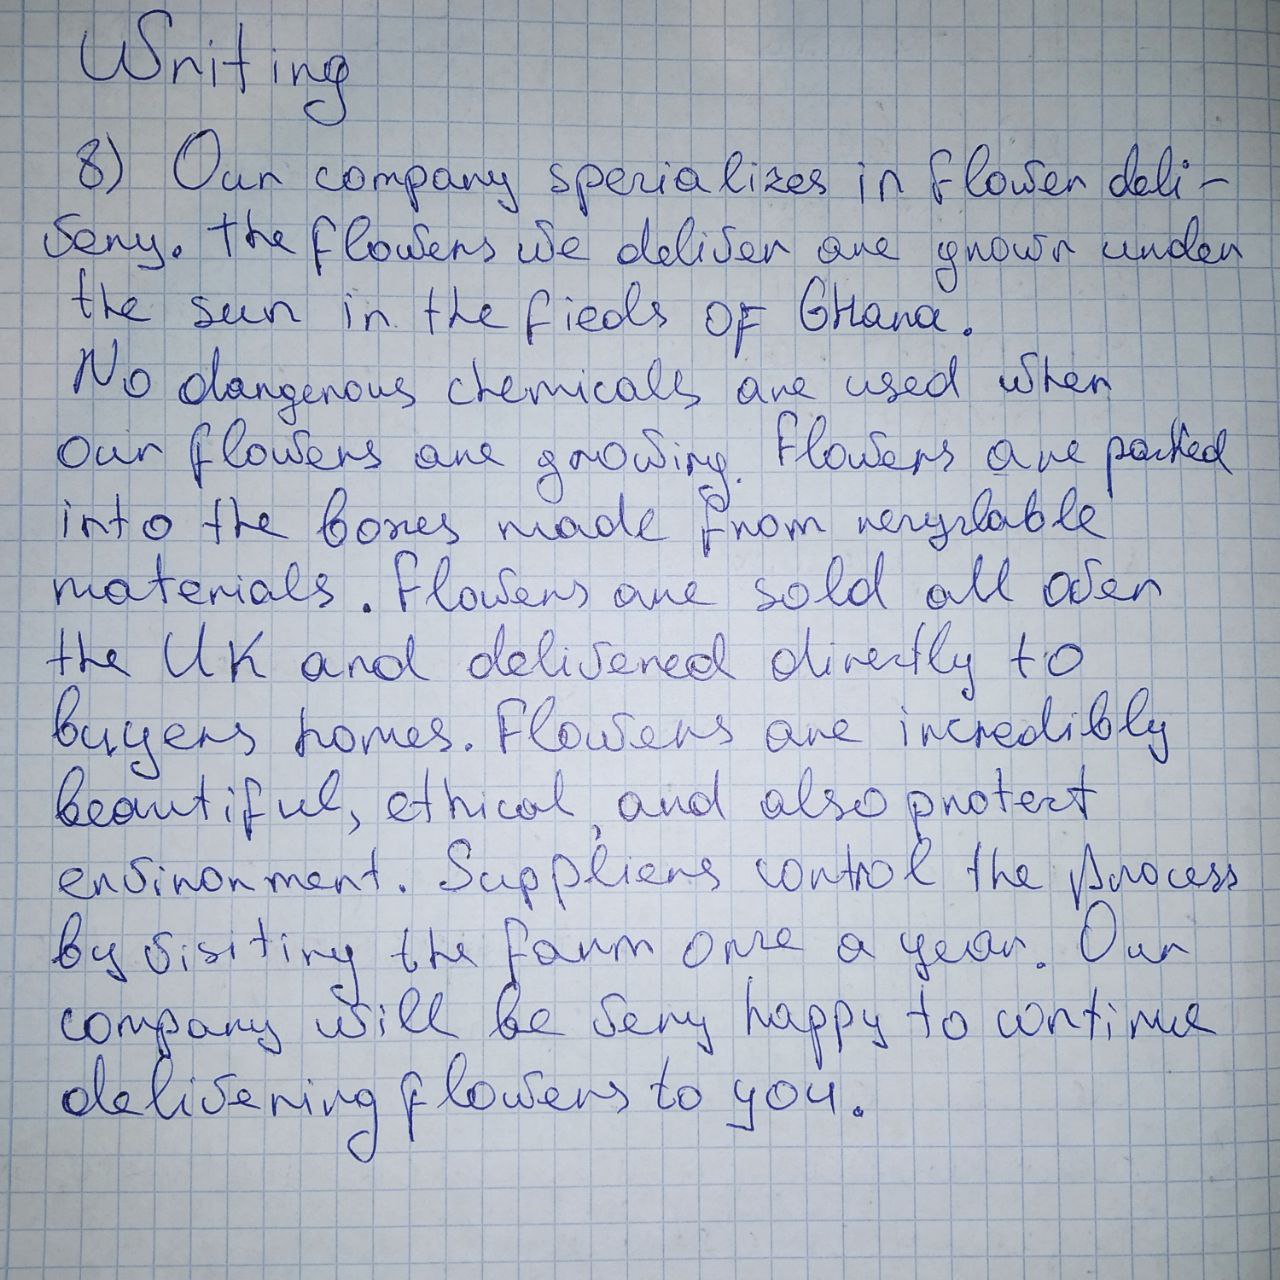 Writing
8) Our company specializes in flower deli-
very. the flowers we deliver are grown under
the sun in the fieds OF GHana.
No dangerous chemicals are used when
our flowers are growing. Flowers are packed
into the boxes made from recyclable
materials. Flowers are sold all over
the UK and delivered directly to
buyers homes. Flowers are incredibly
beautiful, ethical, and also protect
environment. Suppliers control the process
by visiting the farm once a year. Our
company will be very happy to continue
delivering flowers to you.